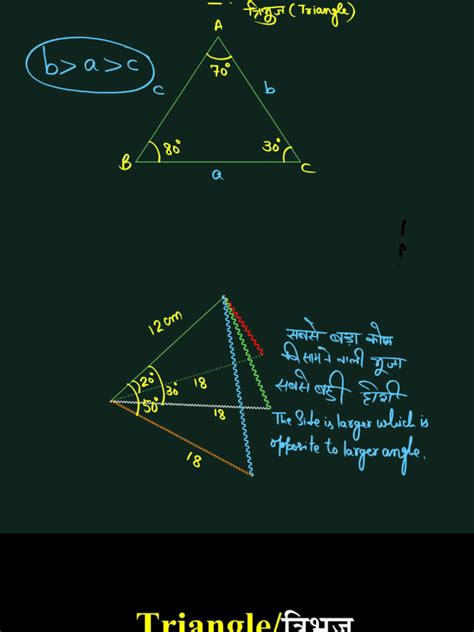 त्रिभुज (Triangle)
A
b>a>c
70°
c
b
80°
30°
B
C
a
12cm
सबसे बड़ा कोण
के सामने वाली भुजा
सबसे बड़ी होगी
20°
30°
18
50°
18
The Side is larger which is
opposite to larger angle.
18
Triangle/त्रिभुज